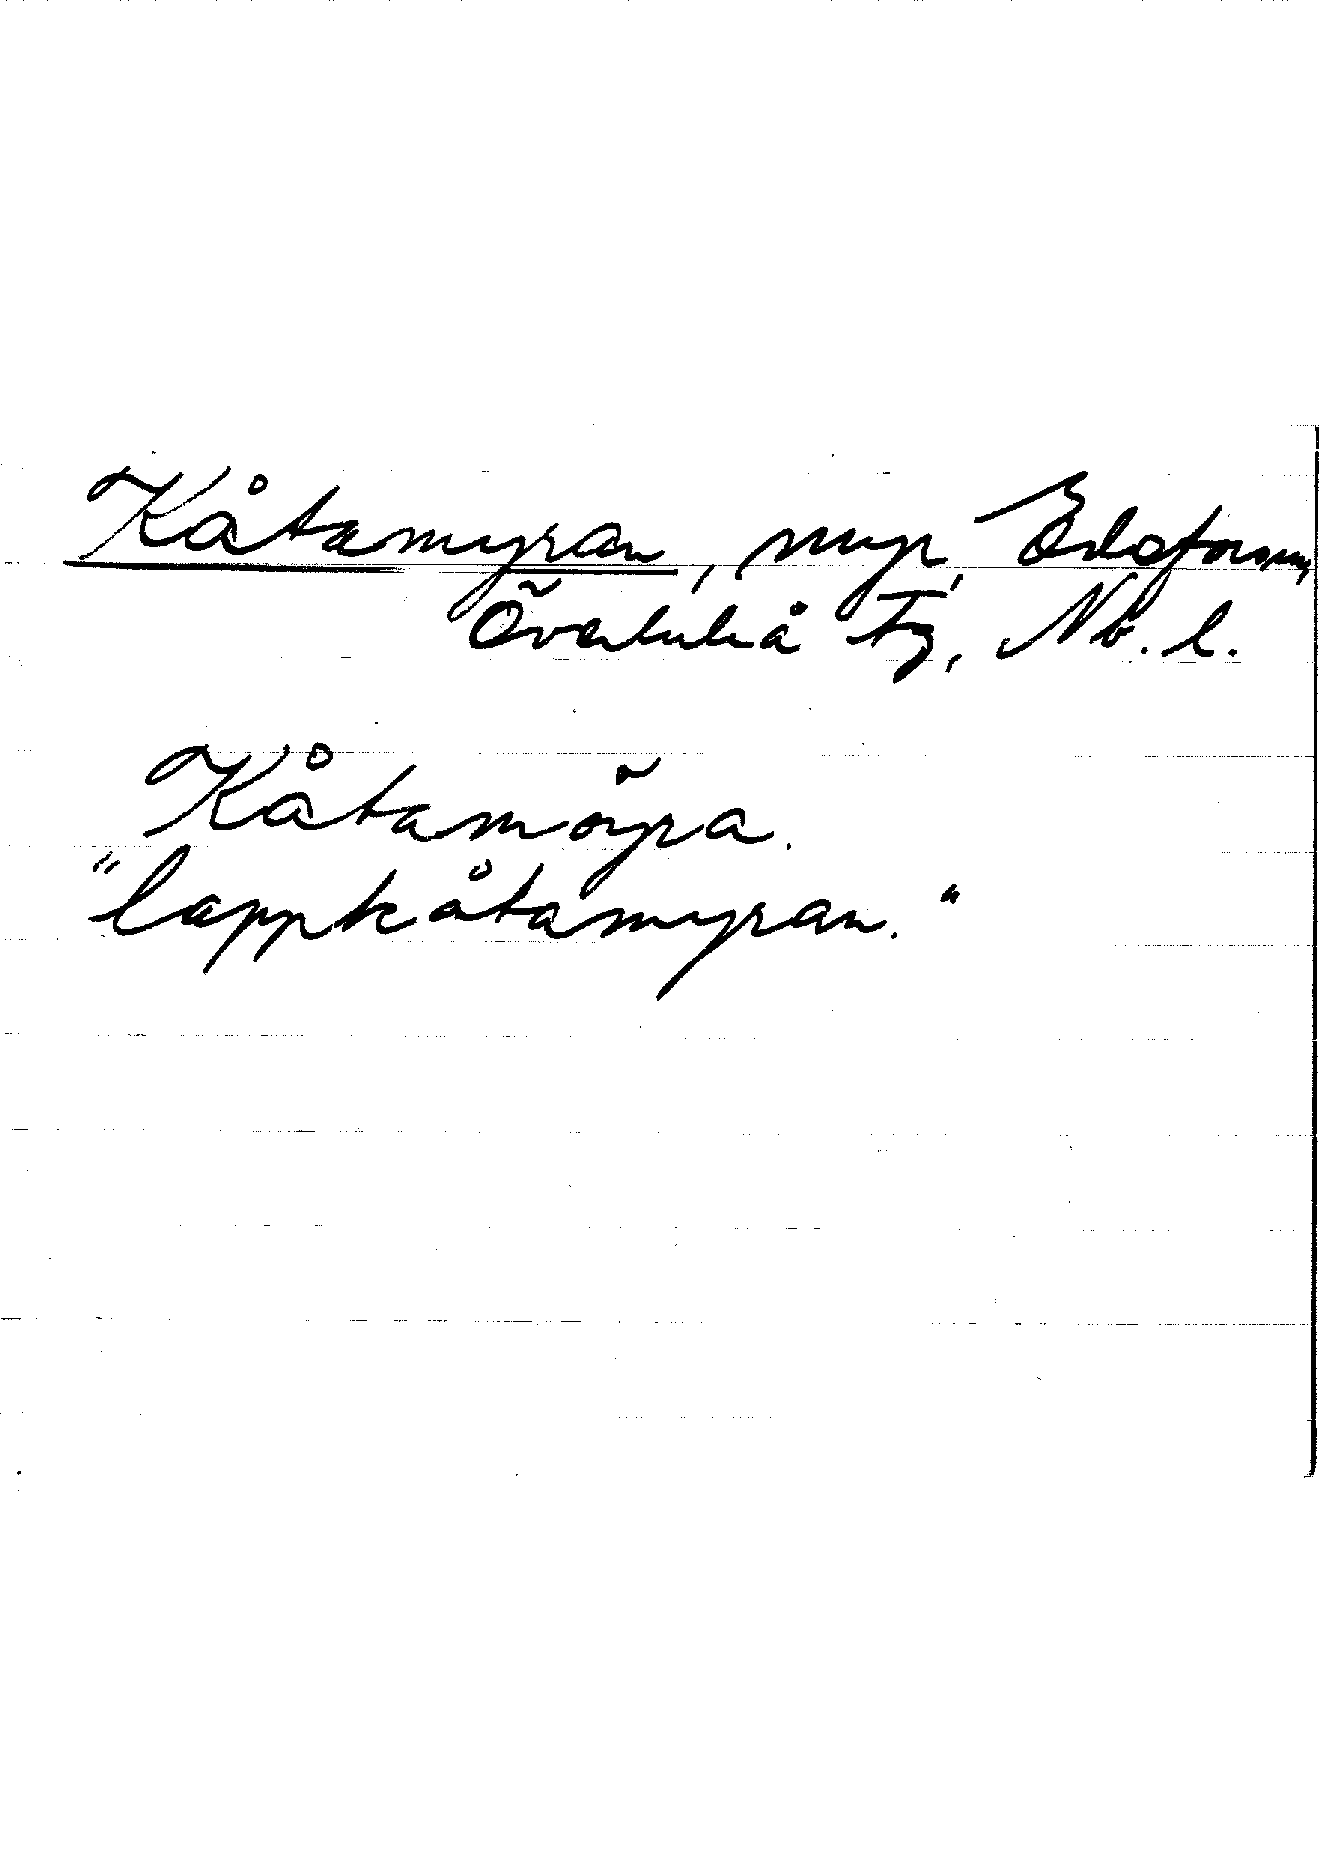 Kåtamyran, myr, Edeforsens
Överluleå tg, Nb. l.
Kåtamöyra.
"lappkåtamyran."